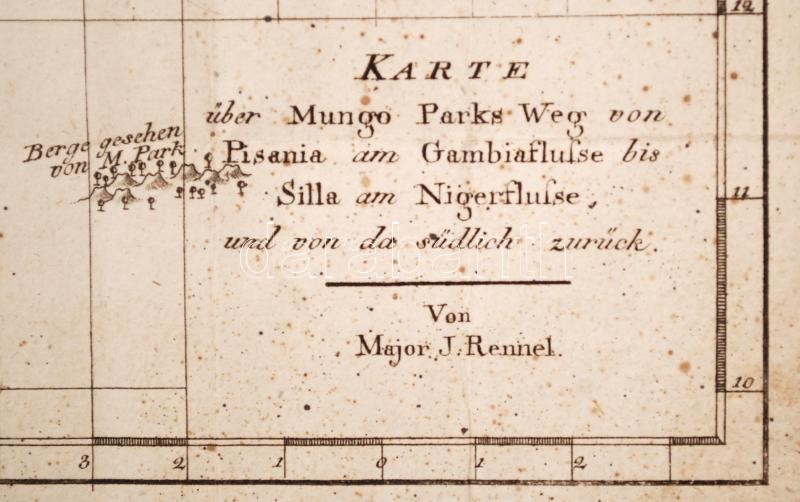 12
KARTE
über Mungo Parks Weg von
Pisania am Gambiafluſse bis
Silla am Nigerfluſse,
und von da südlich zurück.
Von
Major J. Rennel.
Berge gesehen
von M. Park
11
10
3 2 1 0 1 2
darabanth